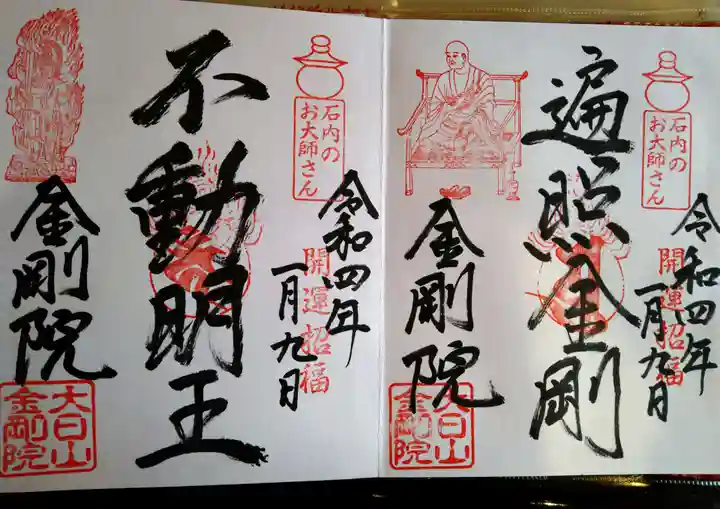 石内の
お大師さん
開運招福
令和四年
一月九日
遍照金剛
金剛院
大日山
金剛院
石内の
お大師さん
開運招福
令和四年
一月九日
不動明王
金剛院
大日山
金剛院